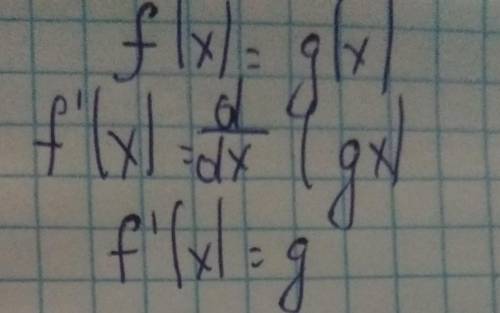 f(x) = g(x)
f'(x) = d/dx (gx)
f'(x) = g